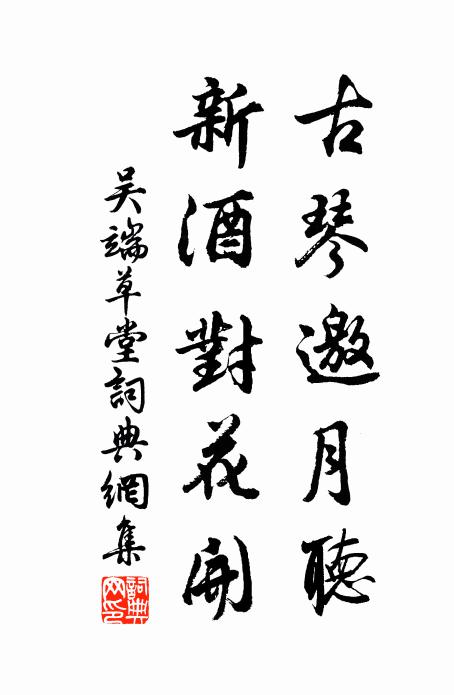 古琴邀月聽
新酒對花開
吴端草堂詞典網集
詞典網印